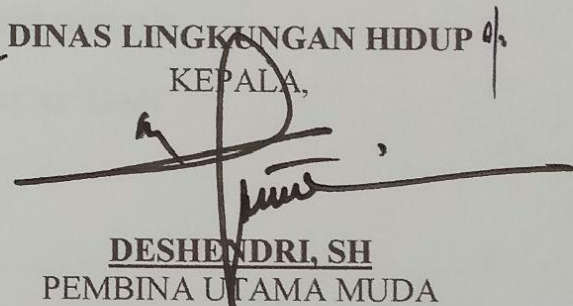 DINAS LINGKUNGAN HIDUP
KEPALA,
DESHENDRI, SH
PEMBINA UTAMA MUDA